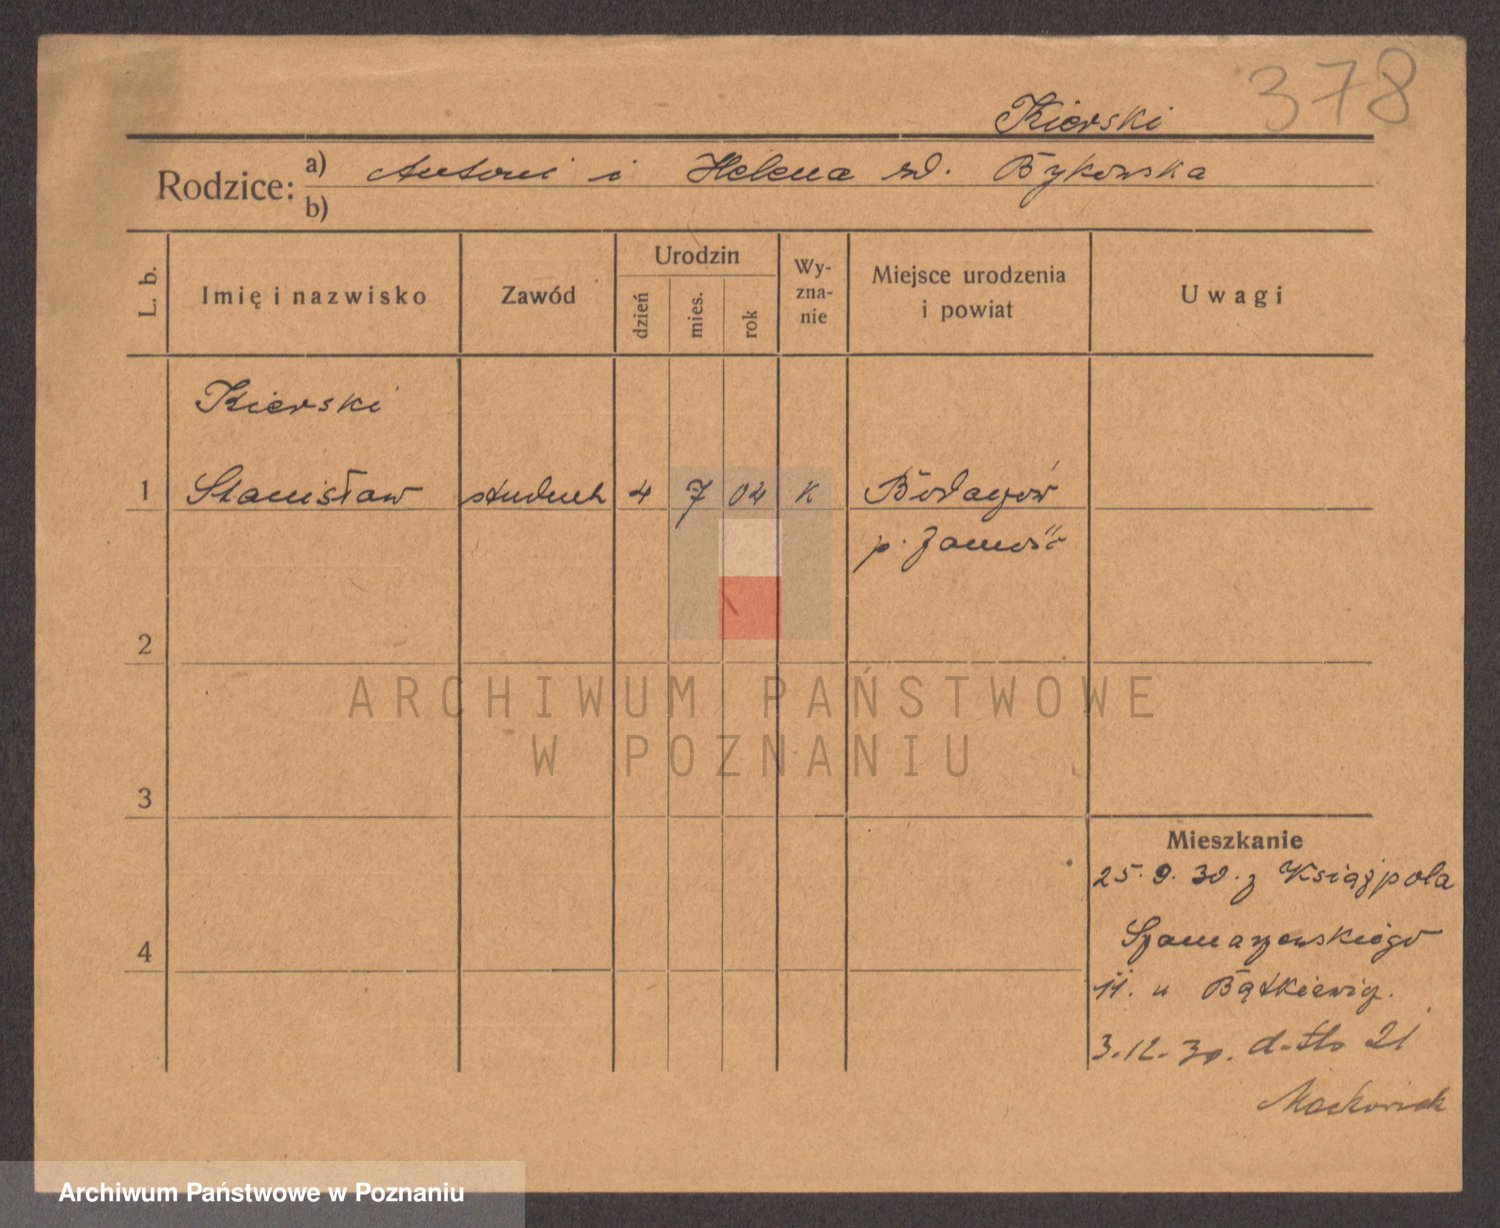 378
Kierski
Rodzice: a) Antoni i Helena zd. Bykowska
b)
L. b.
Imię i nazwisko
Zawód
Urodzin
dzień
mies.
rok
Wy-
zna-
nie
Miejsce urodzenia
i powiat
Uwagi
Kierski
1 Stanisław student 4 7 04 K
p. Zamość
2
3
4
Mieszkanie
25.9.30. z Książpola
Szamarzewskiego
11. u
3.12.30. d-tto 21
ARCHIWUM PAŃSTWOWE
W POZNANIU
Archiwum Państwowe w Poznaniu